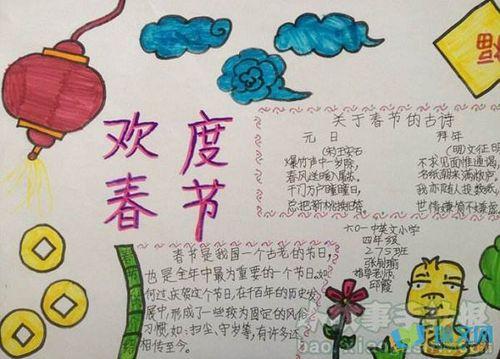 福
欢度
春节
关于春节的古诗
元日
(宋)王安石
爆竹声中一岁除,
春风送暖入屠苏。
千门万户曈曈日,
总把新桃换旧符。
拜年
(明)文征明
不求见面惟通谒,
名纸朝来满敝庐。
我亦随人投数纸,
世情嫌简不嫌虚。
六〇一中英文小学
四年级
275班
指导老师
邱霞
春节是我国一个古老的节日,
也是全年中最为重要的一个节日,如
何过庆贺这个节日,在千百年的历史发
展中,形成了一些较为固定的风俗
习惯,如:扫尘、守岁等,有许多还
相传至今。